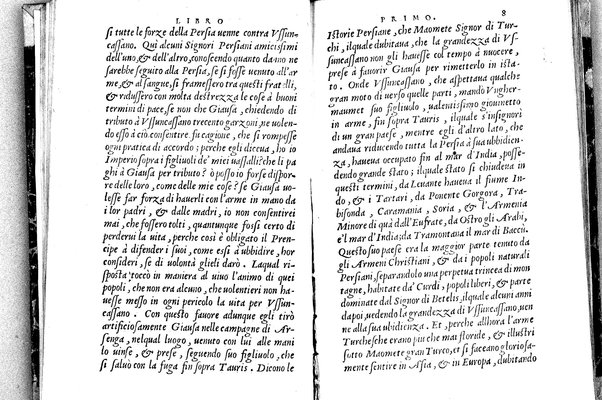 LIBRO
si tutte le forze della Persia uenne contra Vssun-
cassano. Quì alcuni Signori Persiani amicissimi
dell'uno, & dell'altro, conoscendo quanto danno ne
sarebbe seguito alla Persia, se si fosse uenuto all'ar
me, & al sangue, si framessero tra questi fratelli,
& ridussero con molta destrezza le cose à buoni
termini di pace, se non che Giausa, chiedendo di
tributo à Vssuncassano trecento garzoni, ne uolen-
do esso à ciò consentire, fu cagione, che si rompesse
ogni pratica di accordo; perche egli diceua, ho io
Imperio sopra i figliuoli de' miei uassalli: che li pa
ghi à Giausa per tributo? ò posso io forse dispor-
re delle loro, come delle mie cose? se Giausa uo-
lesse far forza di hauerli con l'arme in mano da
i lor padri, & dalle madri, io non consentirei
mai, che fossero tolti, quantunque fossi certo di
perderui la uita, perche così è obligato il Pren-
cipe à difender i suoi, come essi à ubbidire, hor
consideri, se di uolontà glieli darò. Laqual ri-
sposta toccò in maniera al uiuo l'animo di quei
popoli, che non era alcuno, che uolentieri non ha
uesse messo in ogni pericolo la uita per Vssun-
cassano. Con questo fauore adunque egli tirò
artificiosamente Giausa nelle campagne di Ar-
senga, nelqual luogo, uenuto con lui alle mani
lo uinse, & prese, seguendo suo figliuolo, che
si saluò con la fuga fin sopra Tauris. Dicono le
PRIMO. 8
Istorie Persiane, che Maomete Signor di Tur-
chi, ilquale dubitaua, che la grandezza di Vs-
suncassano non gli hauesse col tempo à nuocere,
prese à fauorir Giausa per rimetterlo in ista-
to. Onde Vssuncassano, che aspettaua qualche
gran moto di uerso quelle parti, mandò Vngher-
maumet suo figliuolo, ualentissimo giouinetto
in arme, fin sopra Tauris, ilquale s'insignorì
di un gran paese, mentre egli d'altro lato, che
andaua riducendo tutta la Persia à sua ubbidien-
za, haueua occupato fin al mar d'India, posse-
dendo grande stato; ilquale stato si chiudeua in
questi termini, da Leuante haueua il fiume In-
do, & i Tartari, da Ponente Gorgora, Tra-
bisonda, Caramania, Soria, & l'Armenia
Minore di quà dall'Eufrate, da Ostro gli Arabi,
e'l mar d'India; da Tramontana il mar di Baccù.
Questo suo paese era la maggior parte tenuto da
gli Armeni Christiani, & da i popoli naturali
Persiani, separandolo una perpetua trincea di mon
tagne, habitate da' Curdi, popoli liberi, & parte
dominate dal Signor di Betelis, ilquale alcuni anni
dapoi, uedendo la grandezza di Vssuncassano, uen
ne alla sua ubidienza. Et, perche allhora l'arme
Turchesche erano più che mai floride, & illustri
sotto Maomete gran Turco, et si faceano gloriosa-
mente sentire in Asia, & in Europa, dubitando